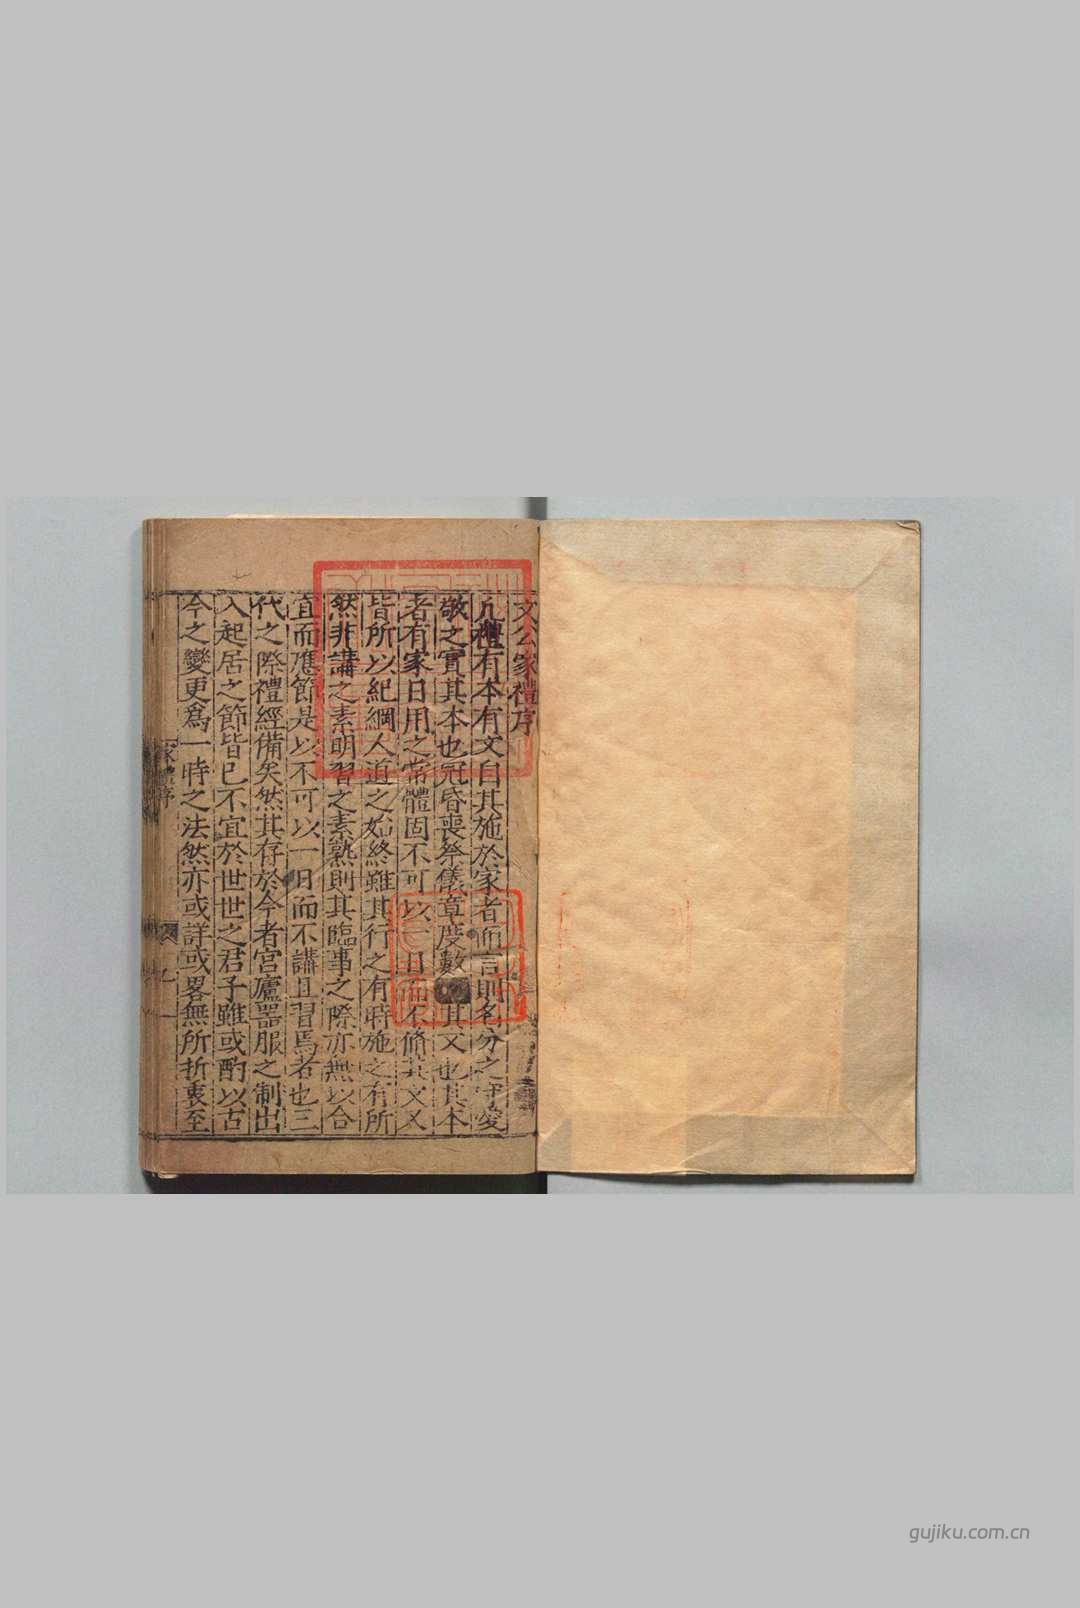 文公家禮序
凡禮有本有文自其施於家者而言則名分之守愛
敬之實其本也冠昏喪祭儀章度數其文也其本
者有家日用之常體固不可以一日而不脩其文又
皆所以紀綱人道之始終雖其行之有時施之有所
然非講之素明習之素熟則其臨事之際亦無以合
宜而應節是以不可以一日而不講且習焉者也三
代之際禮經備矣然其存於今者宮廬器服之制出
入起居之節皆已不宜於世世之君子雖或酌以古
今之變更爲一時之法然亦或詳或畧無所折衷至
家禮序
gujiku.com.cn